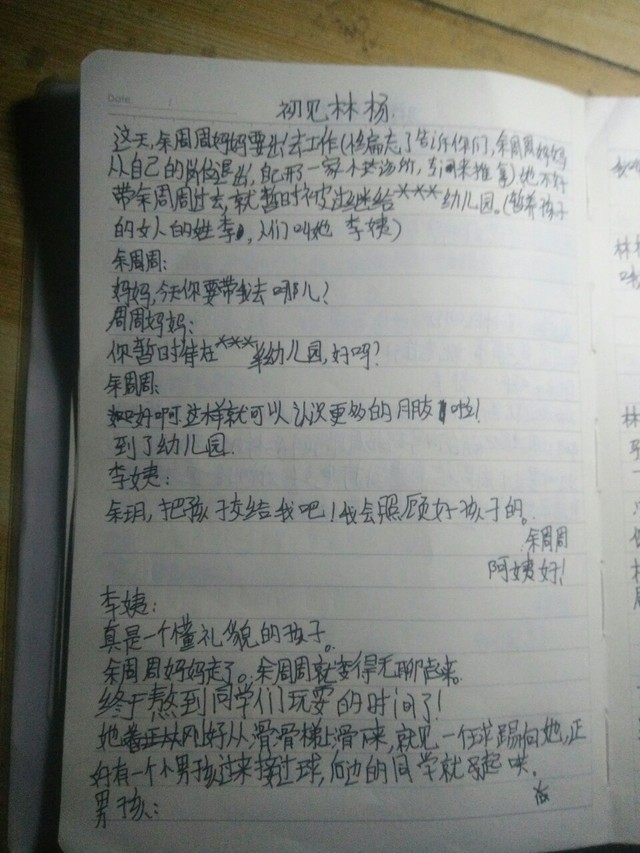 Date
初见林杨
这天,余周周妈妈要出去工作(忘了告诉你们,余周周妈妈
从自己的岗位退出,自己开了一家小场所,专门来推拿)她不好
带余周周过去,就暂时被过继给***幼儿园。(暂养孩子
的女人的姓李,人们叫她 李姨)
余周周:
妈妈,今天你要带我去哪儿?
周周妈妈:
你暂时待在***幼儿园,好吗?
余周周:
好啊,这样就可以认识更多的朋友啦!
到了幼儿园.
李姨:
余玥,把孩子交给我吧!我会照顾好孩子的。
余周周
阿姨好!
李姨:
真是一个懂礼貌的孩子。
余周周妈妈走了。余周周就变得无聊起来。
终于熬到同学们玩耍的时间了!
她刚好从滑滑梯上滑下来,就见一个球踢向她,正
好有一个小男孩过来接过球,同学就起哄。
男孩:
林